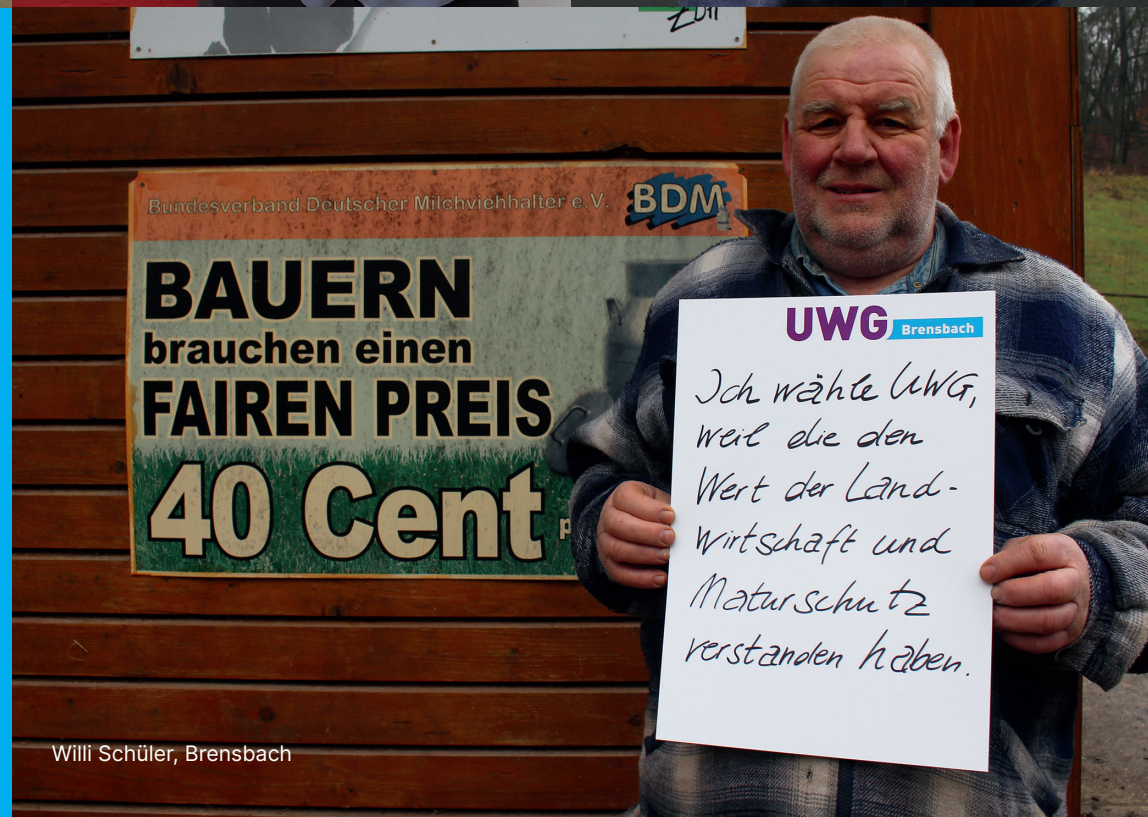 Bundesverband Deutscher Milchviehhalter e.V.
BDM
BAUERN
brauchen einen
FAIREN PREIS
40 Cent
UWG
Brensbach
Ich wähle UWG,
weil die den
Wert der Land-
wirtschaft und
Naturschutz
verstanden haben.
Willi Schüler, Brensbach